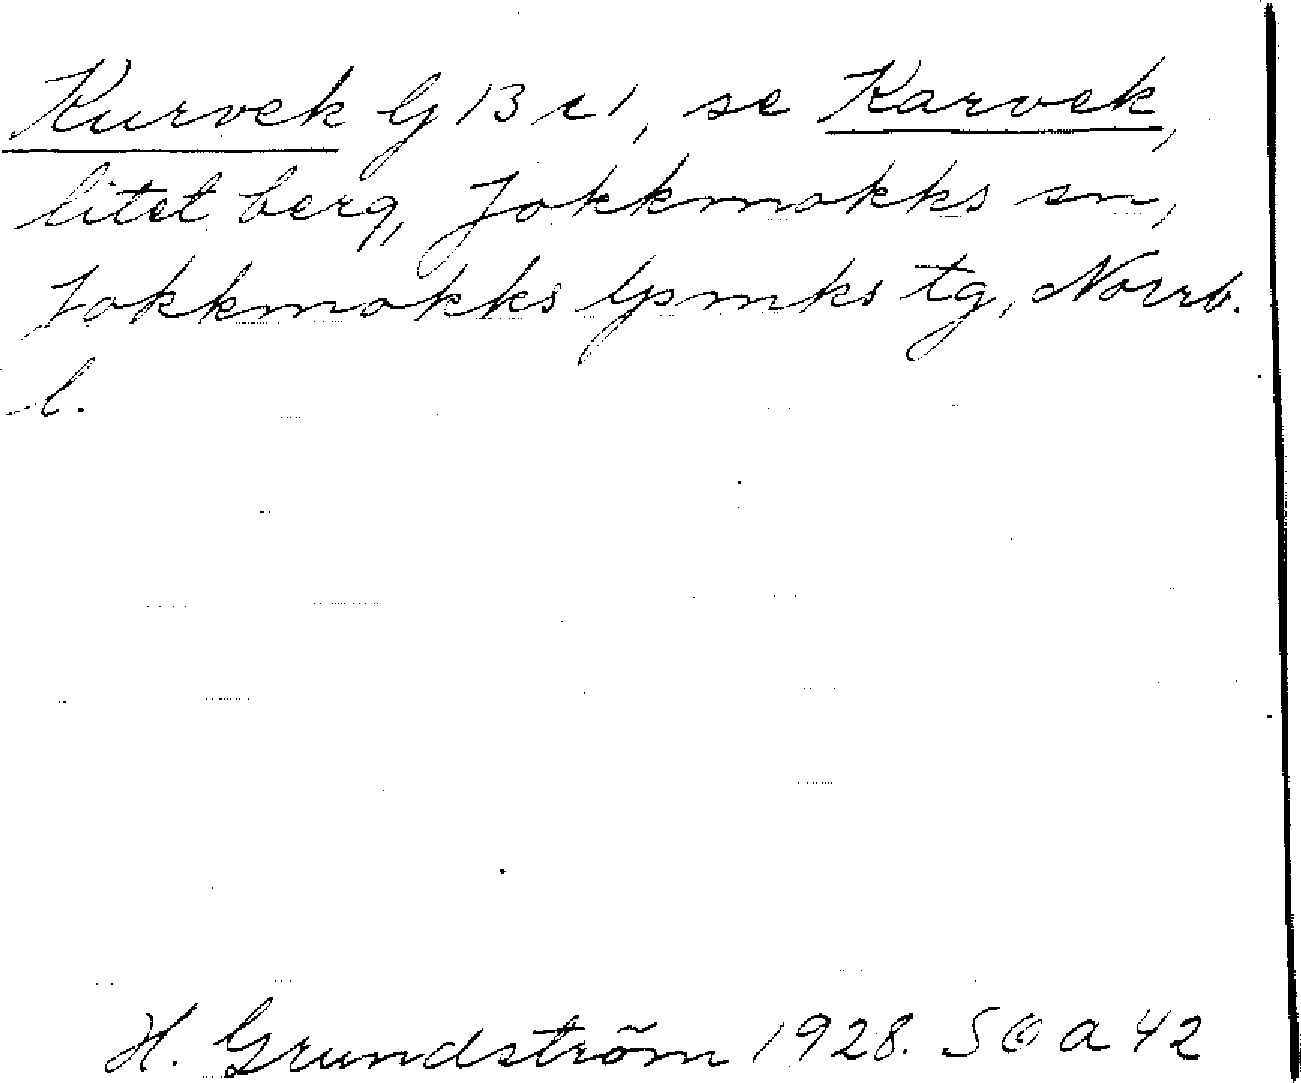 Kurvek G 13 r 1, se Karvek,
litet berg, Jokkmokks sn,
Jokkmokks lpmks tg, Norrb.
l.
H. Grundström 1928. SOA 42